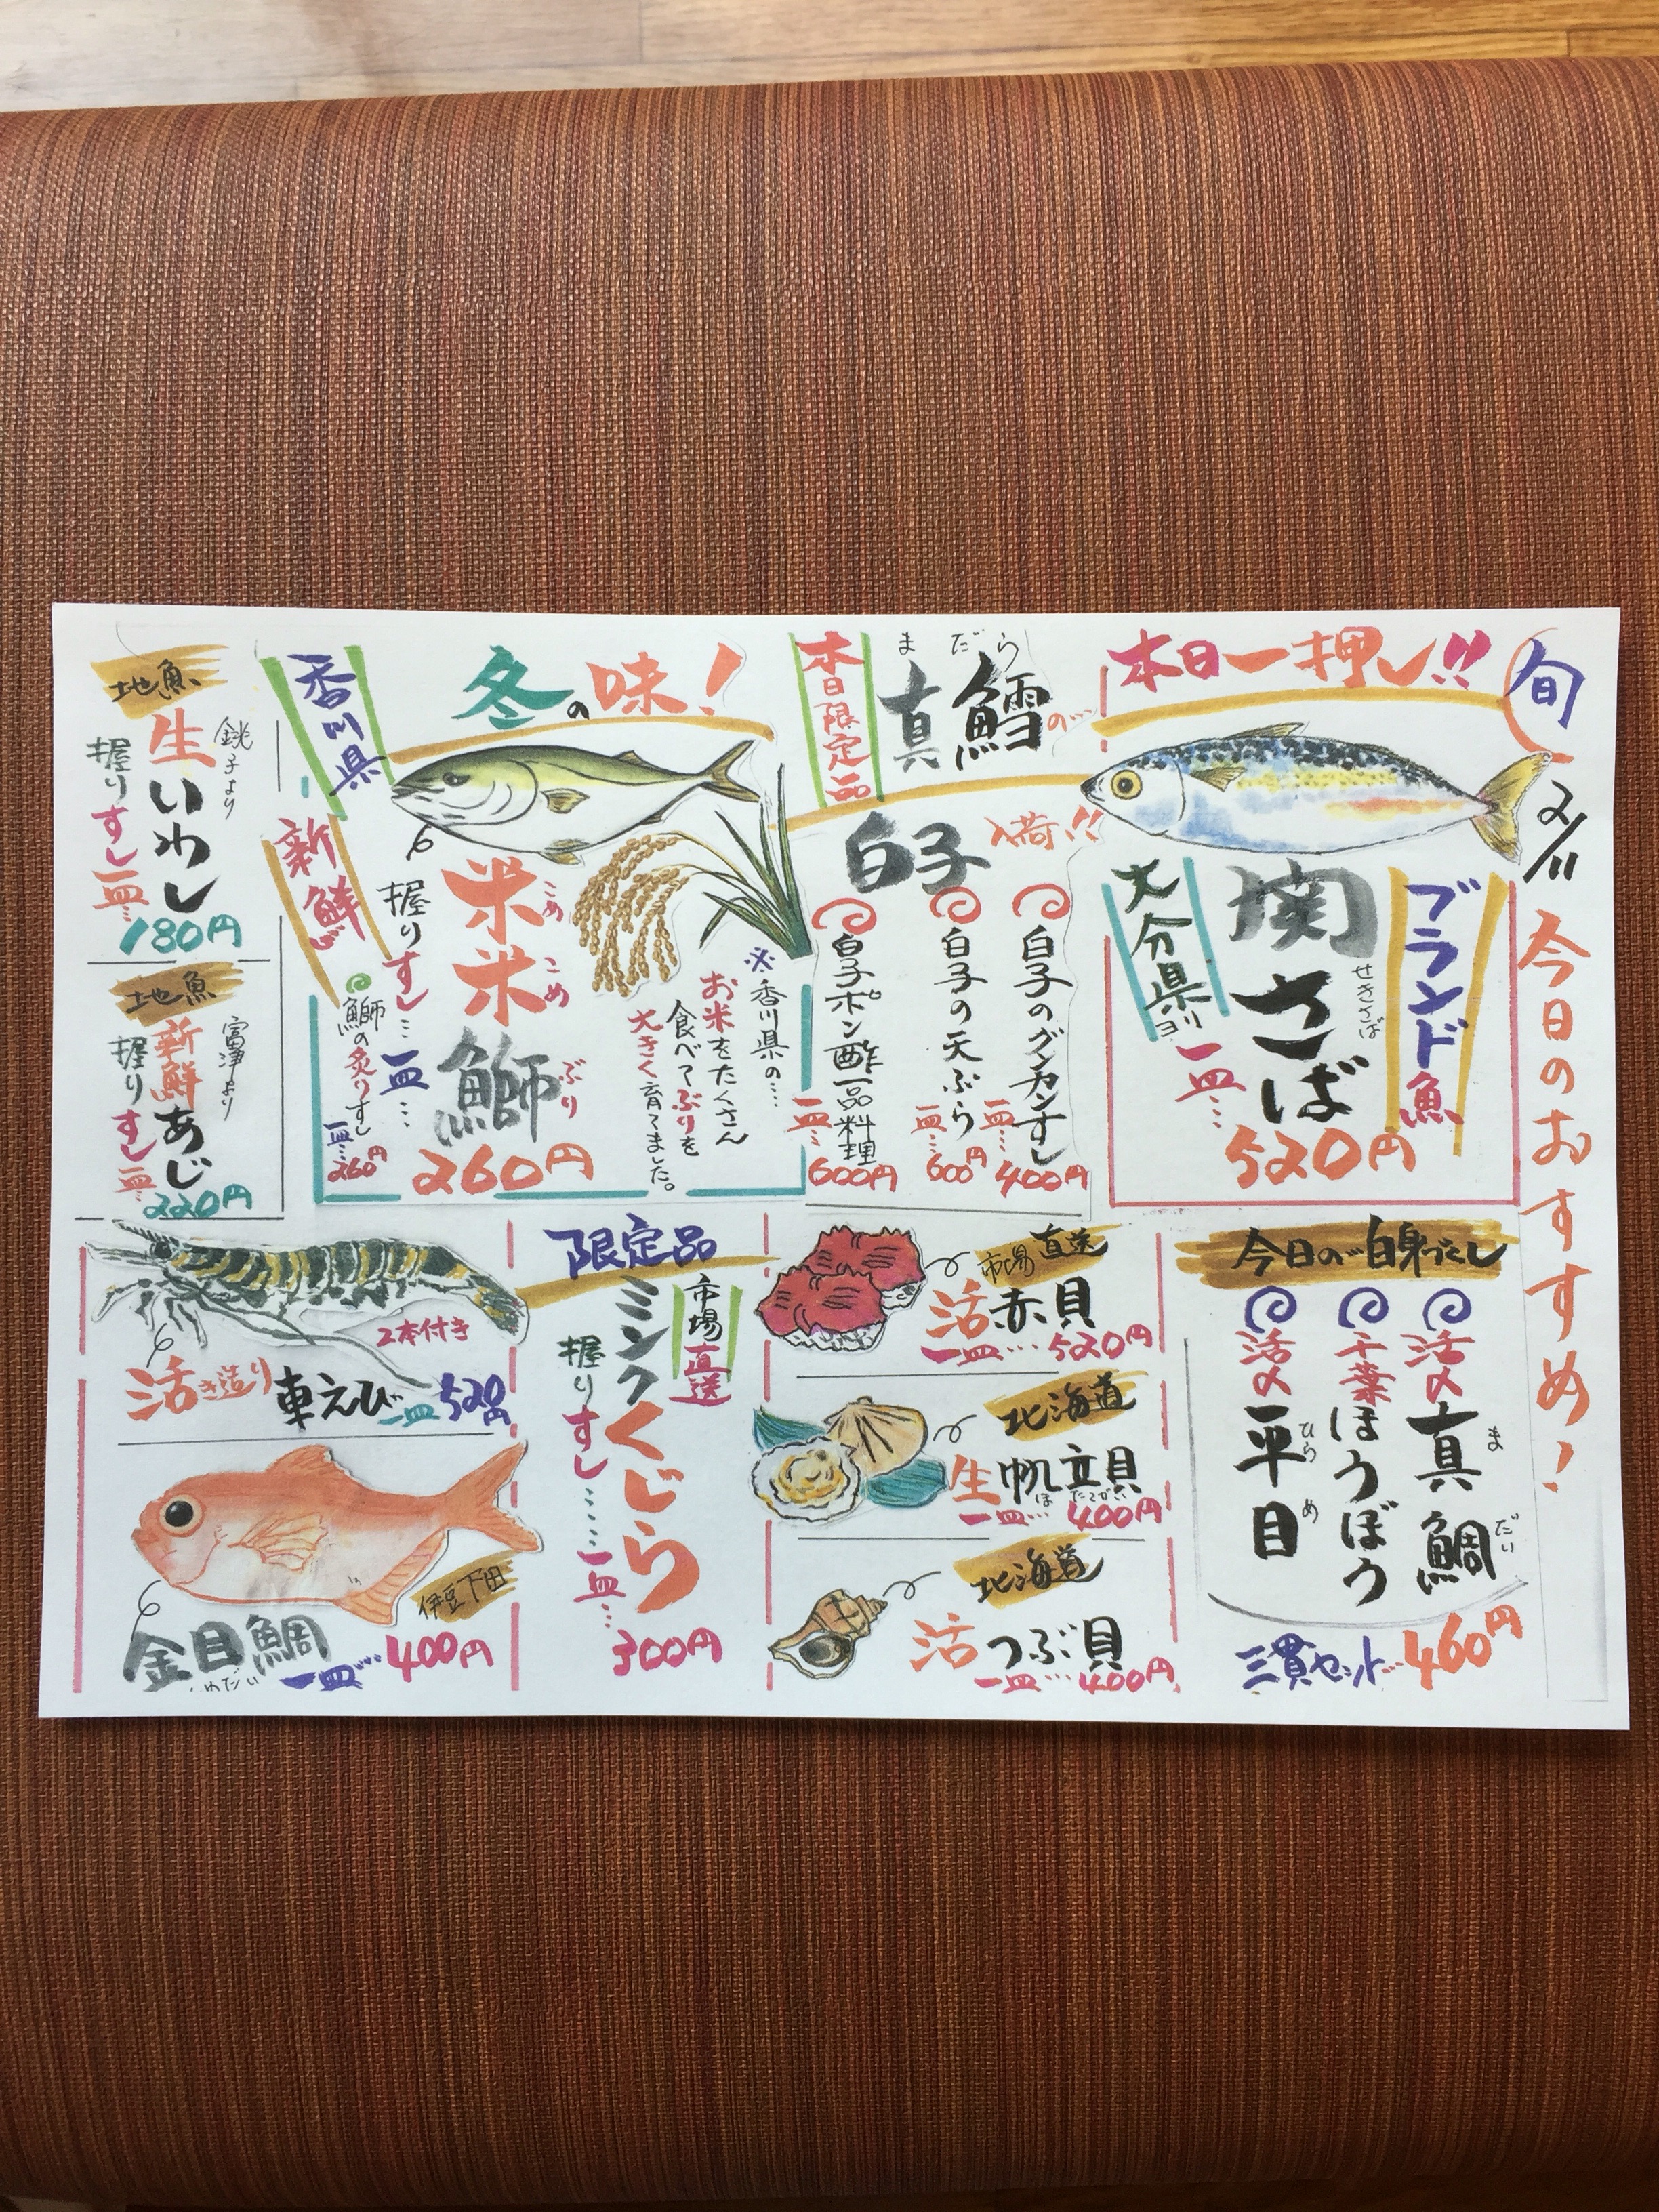 旬
2/11
今日のおすすめ!
本日一押し!!
ブランド魚
関さば
せきさば
大分県ヨリ
一皿…
520円
本日限定品
まだら
真鱈の…
白子
入荷!!
白子のグンカンすし
一皿…
400円
白子の天ぷら
一皿…
600円
白子ポン酢一品料理
一皿…
600円
冬の味!
香川県
新鮮
※香川県の…
お米をたくさん
食べてぶりを
大きく育てました。
米米鰤
こめこめぶり
握りすし…一皿…
260円
鰤の炙りすし
一皿…
260円
地魚
銚子より
生いわし
握りすし一皿…
180円
地魚
富津より
新鮮あじ
握りすし一皿…
220円
今日の白身づくし
活〆真鯛
まだい
千葉ほうぼう
活〆平目
ひらめ
三貫セット…460円
市場直送
活赤貝
一皿…520円
北海道
生帆立貝
ほたてがい
一皿…400円
北海道
活つぶ貝
一皿…400円
限定品
市場直送
ミンクくじら
握りすし……一皿…
300円
2本付き
活き造り車えび一皿520円
伊豆下田
金目鯛
一皿…400円